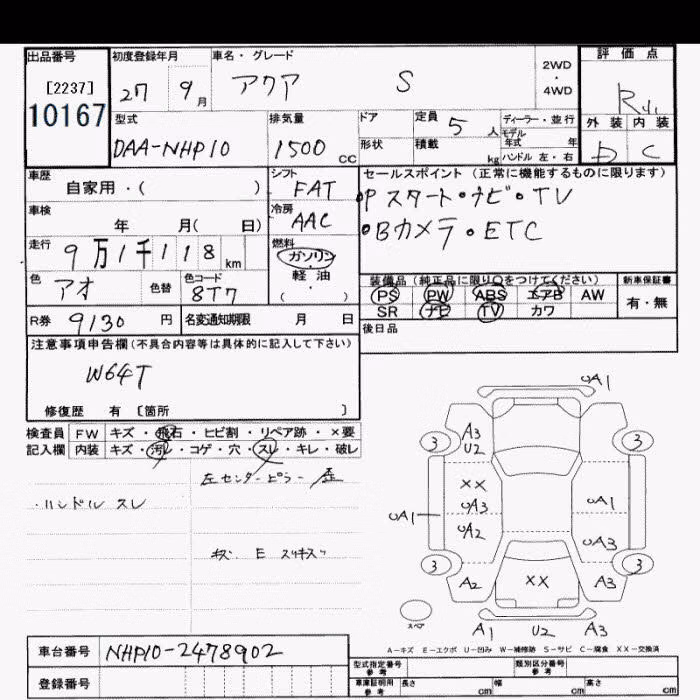 出品番号
[2237]
10167
初度登録年月
27 9月
車名・グレード
アクア S
2WD
・
4WD
評価点
R
外装 内装
D C
型式
DAA-NHP10
排気量
1500 cc
ドア
形状
定員 5 人
積載 kg
ディーラー・並行
モデル年式 年
ハンドル 左・右
車歴
自家用・( )
シフト
FAT
セールスポイント (正常に機能するものに限ります)
・Pスタート・ナビ・TV
・Bカメラ・ETC
車検
年 月( 日)
冷房
AAC
走行
9万1千118 km
燃料
ガソリン
軽油
( )
色
アオ
色替
色コード
8T7
装備品 (純正品に限り○をつけてください)
PS PW ABS エアB AW
SR ナビ TV カワ
新車保証書
有・無
R券 9130 円
名変通知期限 月 日
後日品
注意事項申告欄 (不具合内容等は具体的に記入して下さい)
W64T
修復歴 有 〔箇所 〕
検査員
記入欄
FW キズ・飛石・ヒビ割・リペア跡・×要
内装 キズ・汚レ・コゲ・穴・スレ・キレ・破レ
左センターピラー
・ハンドル スレ
キズ E
UA1
3 A3 U2 3
XX
UA3 UA1
UA1
UA2 UA3
3 3
A2 XX A3
スペア
A1 U2 A3
A-キズ E-エクボ U-凹み W-補修跡 S-サビ C-腐食 XX-交換済
車台番号 NHP10-2478902
登録番号
型式指定番号
参考
類別区分番号
参考
車庫証明用
参考
長さ cm 幅 cm 高さ cm